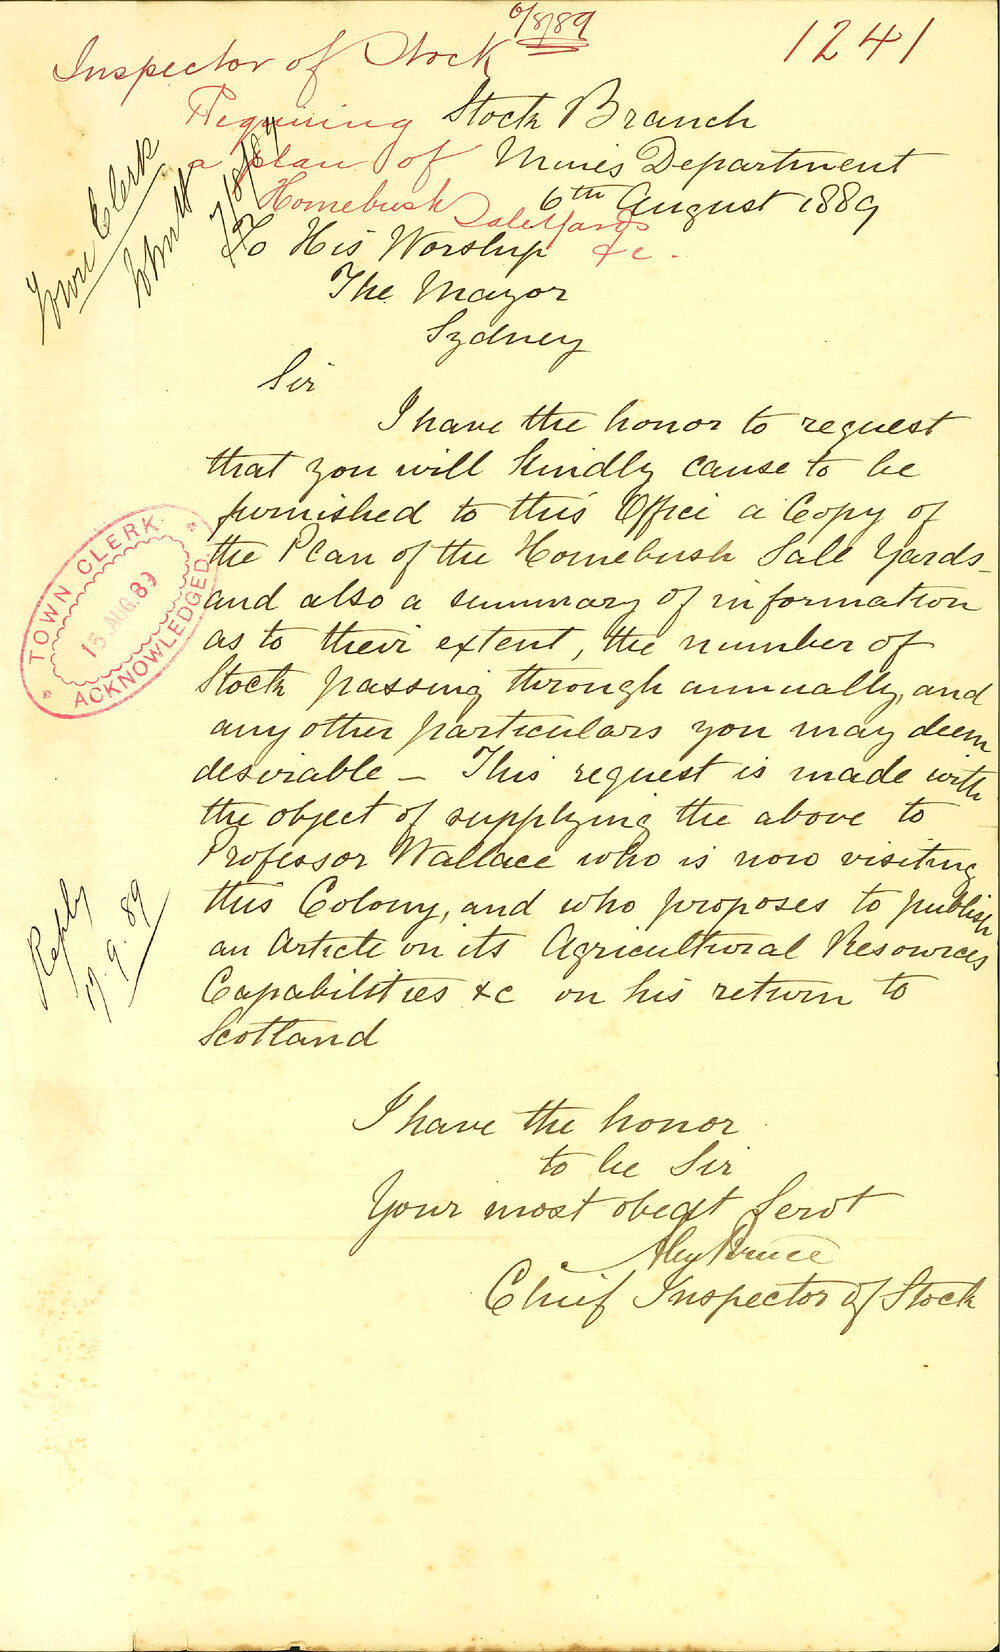 6/8/89
1241
Inspector of Stock
Requiring
a plan of
Homebush
Sale Yards
&c.
Town Clerk
7/8/89
Stock Branch
Mines Department
6th August 1889
To His Worship
The Mayor
Sydney
Sir
I have the honor to request
that you will kindly cause to be
furnished to this Office a Copy of
the Plan of the Homebush Sale Yards
and also a summary of information
as to their extent, the number of
Stock passing through annually, and
any other particulars you may deem
desirable – This request is made with
the object of supplying the above to
Professor Wallace who is now visiting
this Colony, and who proposes to publish
an Article on its Agricultural Resources
Capabilities &c on his return to
Scotland
I have the honor
to be Sir
Your most obedt Servt
Alex Bruce
Chief Inspector of Stock
TOWN CLERK
15 AUG. 89
ACKNOWLEDGED
Reply
17.9.89